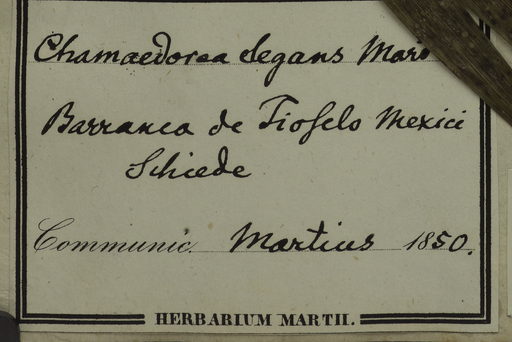 Chamaedorea elegans Mart
Barranca de Tioselo Mexici
Schiede
Communic. Martius 1850.
HERBARIUM MARTII.